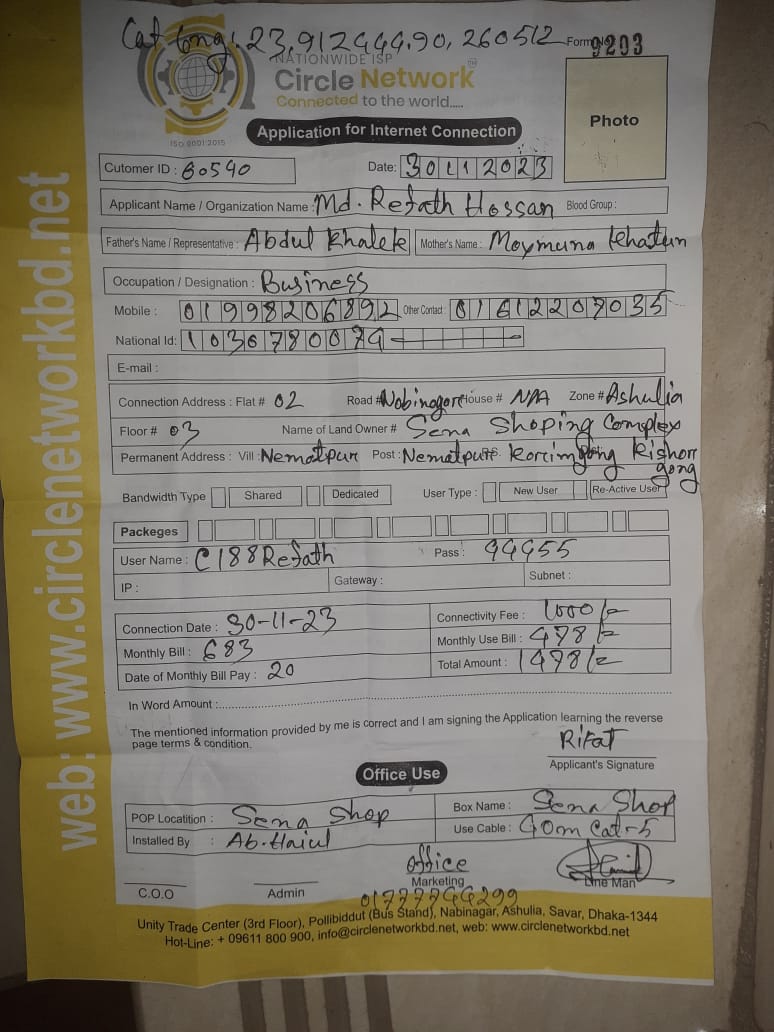 Cat long: 23.912444.90, 260512 Form No 9203
NATIONWIDE ISP
Circle Network
Connected to the world.....
ISO 9001:2015
Application for Internet Connection
Photo
Cutomer ID : 60590 Date: 30112023
Applicant Name / Organization Name : Md. Refath Hossan Blood Group :
Father's Name / Representative : Abdul Khalek Mother's Name : Moymuna Khatun
Occupation / Designation : Business
Mobile : 01998206892 Other Contact : 01612207035
National Id: 1036780079
E-mail :
Connection Address : Flat # 02 Road # Nobinogor House # N/A Zone # Ashulia
Floor # 03 Name of Land Owner # Sena Shoping Complex
Permanent Address : Vill : Nematpur Post : Nematpur P.S. Korimgong Kishorgong
Bandwidth Type Shared Dedicated User Type : New User Re-Active User
Packeges
User Name : C188Refath Pass : 99955
IP : Gateway : Subnet :
Connection Date : 30-11-23 Connectivity Fee : 1000/=
Monthly Bill : 683 Monthly Use Bill : 478/=
Date of Monthly Bill Pay : 20 Total Amount : 1478/=
In Word Amount :
The mentioned information provided by me is correct and I am signing the Application learning the reverse
page terms & condition.
Rifat
Applicant's Signature
Office Use
POP Locatition : Sena Shop Box Name : Sena Shop
Installed By : Ab. Haiul Use Cable : 40m Cat-5
office
C.O.O Admin Marketing Line Man
01777744299
Unity Trade Center (3rd Floor), Pollibiddut (Bus Stand), Nabinagar, Ashulia, Savar, Dhaka-1344
Hot-Line: + 09611 800 900, info@circlenetworkbd.net, web: www.circlenetworkbd.net
web: www.circlenetworkbd.net